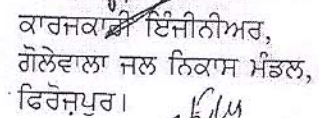 ਕਾਰਜਕਾਰੀ ਇੰਜੀਨੀਅਰ,
ਗੋਲੇਵਾਲਾ ਜਲ ਨਿਕਾਸ ਮੰਡਲ,
ਫਿਰੋਜ਼ਪੁਰ।